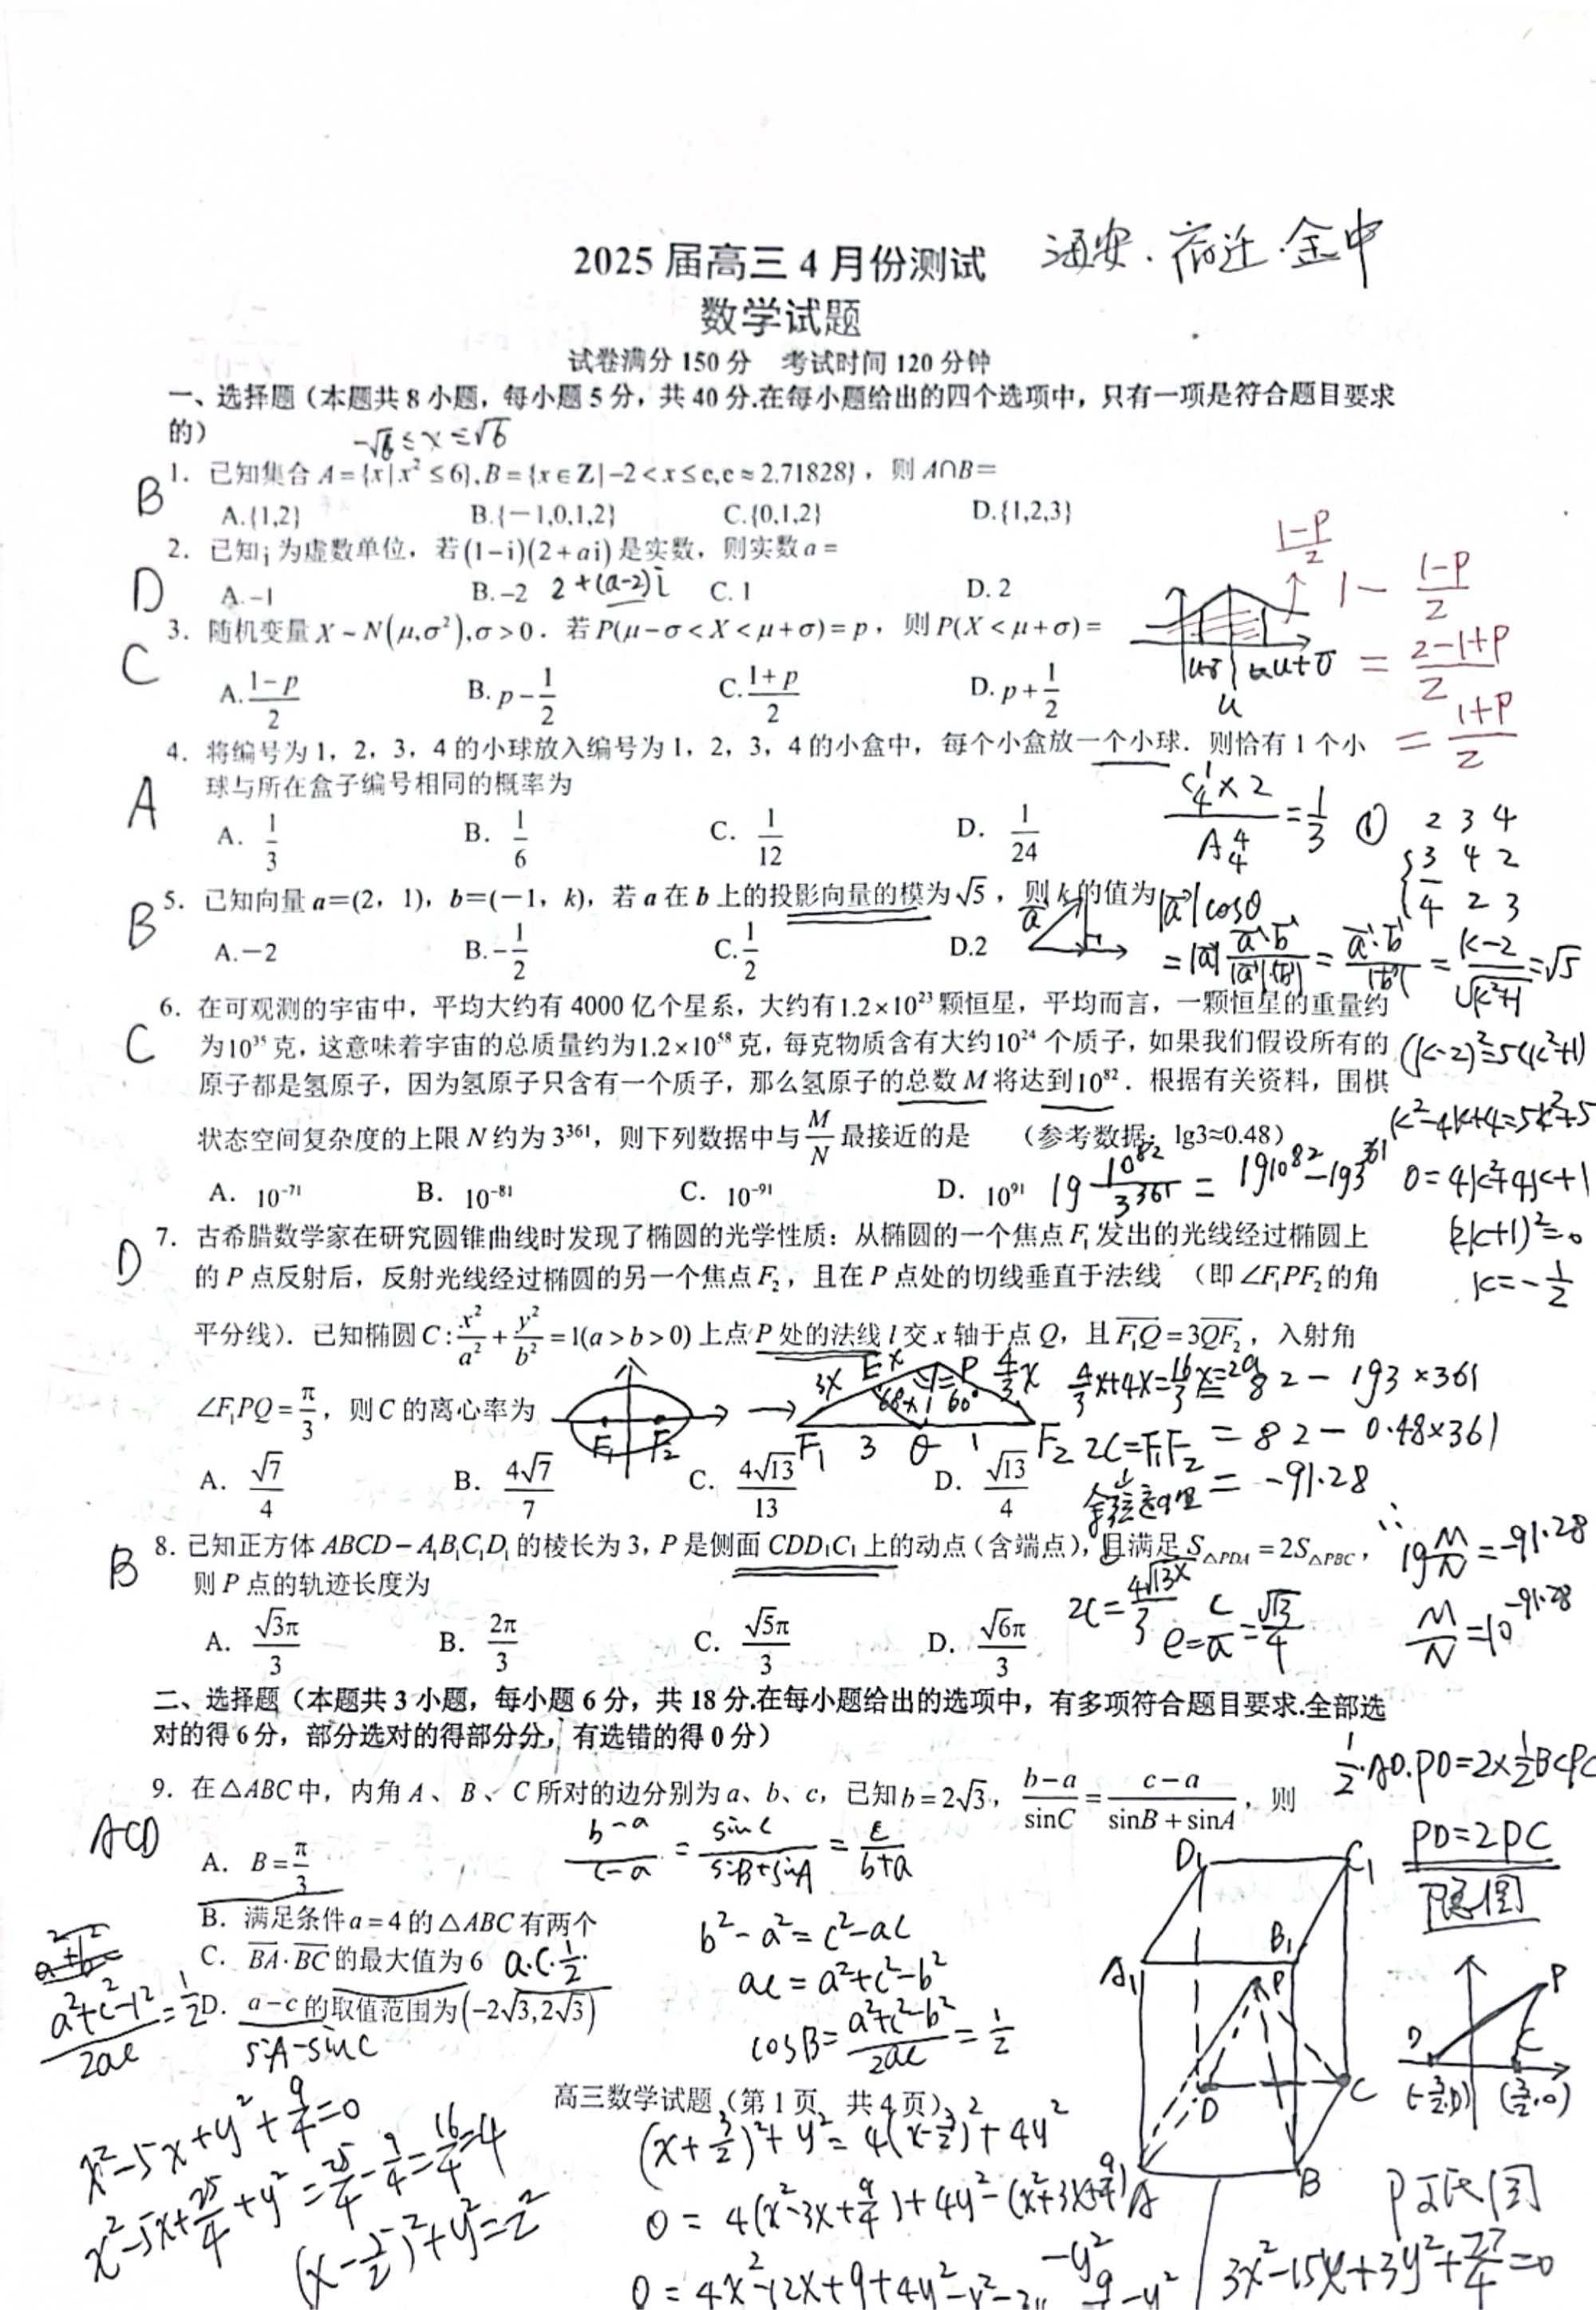 2025届高三4月份测试
海安·宿迁·金中
数学试题
试卷满分 150 分 考试时间 120 分钟
一、选择题（本题共 8 小题，每小题 5 分，共 40 分.在每小题给出的四个选项中，只有一项是符合题目要求
的）
-√6≤x≤√6
B
1. 已知集合 A={x|x²≤6},B={x∈Z|-2<x≤e,e≈2.71828}，则 A∩B=
A.{1,2} B.{-1,0,1,2} C.{0,1,2} D.{1,2,3}
D
2. 已知i为虚数单位，若(1-i)(2+ai)是实数，则实数a=
A.-1 B.-2 2+(a-2)i C. 1 D. 2
C
3. 随机变量X~N(μ,σ²),σ>0．若P(μ-σ<X<μ+σ)=p，则P(X<μ+σ)=
A.(1-p)/2 B. p-1/2 C.(1+p)/2 D. p+1/2
(1-p)/2
1-(1-p)/2
=(2-1+p)/2
=(1+p)/2
A
4. 将编号为 1，2，3，4 的小球放入编号为 1，2，3，4 的小盒中，每个小盒放一个小球．则恰有 1 个小
球与所在盒子编号相同的概率为
A. 1/3 B. 1/6 C. 1/12 D. 1/24
(C₄¹×2)/A₄⁴=1/3
① 2 3 4
3 4 2
4 2 3
B
5. 已知向量 a=(2，1)，b=(-1，k)，若 a 在 b 上的投影向量的模为√5，则 k 的值为
A.-2 B.-1/2 C.1/2 D.2
|a|cosθ
=|a| (a·b)/(|a|·|b|)=(a·b)/|b|=(k-2)/√(k²+1)=√5
(k-2)²=5(k²+1)
k²-4k+4=5k²+5
0=4k²+4k+1
(2k+1)²=0
k=-1/2
C
6. 在可观测的宇宙中，平均大约有 4000 亿个星系，大约有1.2×10²³颗恒星，平均而言，一颗恒星的重量约
为10³⁵克，这意味着宇宙的总质量约为1.2×10⁵⁸克，每克物质含有大约10²⁴个质子，如果我们假设所有的
原子都是氢原子，因为氢原子只含有一个质子，那么氢原子的总数 M 将达到10⁸²．根据有关资料，围棋
状态空间复杂度的上限 N 约为 3³⁶¹，则下列数据中与 M/N 最接近的是 （参考数据：lg3≈0.48）
A. 10⁻⁷¹ B. 10⁻⁸¹ C. 10⁻⁹¹ D. 10⁹¹
lg 10⁸²/3³⁶¹=lg10⁸²-lg3³⁶¹
82-lg3×361
=82-0.48×361
=-91.28
∴lg M/N=-91.28
M/N=10^(-91.28)
D
7. 古希腊数学家在研究圆锥曲线时发现了椭圆的光学性质：从椭圆的一个焦点F₁发出的光线经过椭圆上
的 P 点反射后，反射光线经过椭圆的另一个焦点F₂，且在 P 点处的切线垂直于法线 （即∠F₁PF₂的角
平分线）．已知椭圆C:x²/a²+y²/b²=1(a>b>0)上点P处的法线l交x轴于点Q，且F₁Q=3QF₂，入射角
∠F₁PQ=π/3，则C的离心率为
A. √7/4 B. 4√7/7 C. 4√13/13 D. √13/4
F₁ F₂
3x E x P 4/3x
60° x 60°
F₁ 3 Q 1 F₂
4/3x+4x=16/3x=2a
2c=F₁F₂
余弦定理
2c=4√13x/3
e=c/a=√13/4
B
8. 已知正方体 ABCD-A₁B₁C₁D₁的棱长为 3, P 是侧面 CDD₁C₁上的动点（含端点），且满足S△PDA=2S△PBC，
则 P 点的轨迹长度为
A. √3π/3 B. 2π/3 C. √5π/3 D. √6π/3
二、选择题（本题共 3 小题，每小题 6 分，共 18 分.在每小题给出的选项中，有多项符合题目要求.全部选
对的得 6 分，部分选对的得部分分，有选错的得 0 分）
1/2·AD·PD=2×1/2BC·PC
PD=2PC
P隐圆
ACD
9. 在△ABC中，内角A、B、C所对的边分别为a、b、c，已知b=2√3，(b-a)/sinC=(c-a)/(sinB+sinA)，则
A. B=π/3
B. 满足条件a=4的△ABC有两个
C. BA·BC的最大值为6 a·c·1/2
D. a-c的取值范围为(-2√3,2√3)
sinA-sinC
(b-a)/(c-a)=sinC/(sinB+sinA)=c/(b+a)
b²-a²=c²-ac
ac=a²+c²-b²
cosB=(a²+c²-b²)/2ac=1/2
(a²+c²-b²)/2ac=1/2
D₁ C₁
A₁ B₁
P
D C
A B
D P C
(-3/2,0) (3/2,0)
高三数学试题（第 1 页 共 4 页）
(x+3/2)²+y²=4(x-3/2)²+4y²
0=4(x²-3x+9/4)+4y²-(x²+3x+9/4)
-y²
P阿氏圆
3x²-15x+3y²+27/4=0
x²-5x+y²+9/4=0
x²-5x+25/4+y²=25/4-9/4=16/4=4
(x-5/2)²+y²=2²